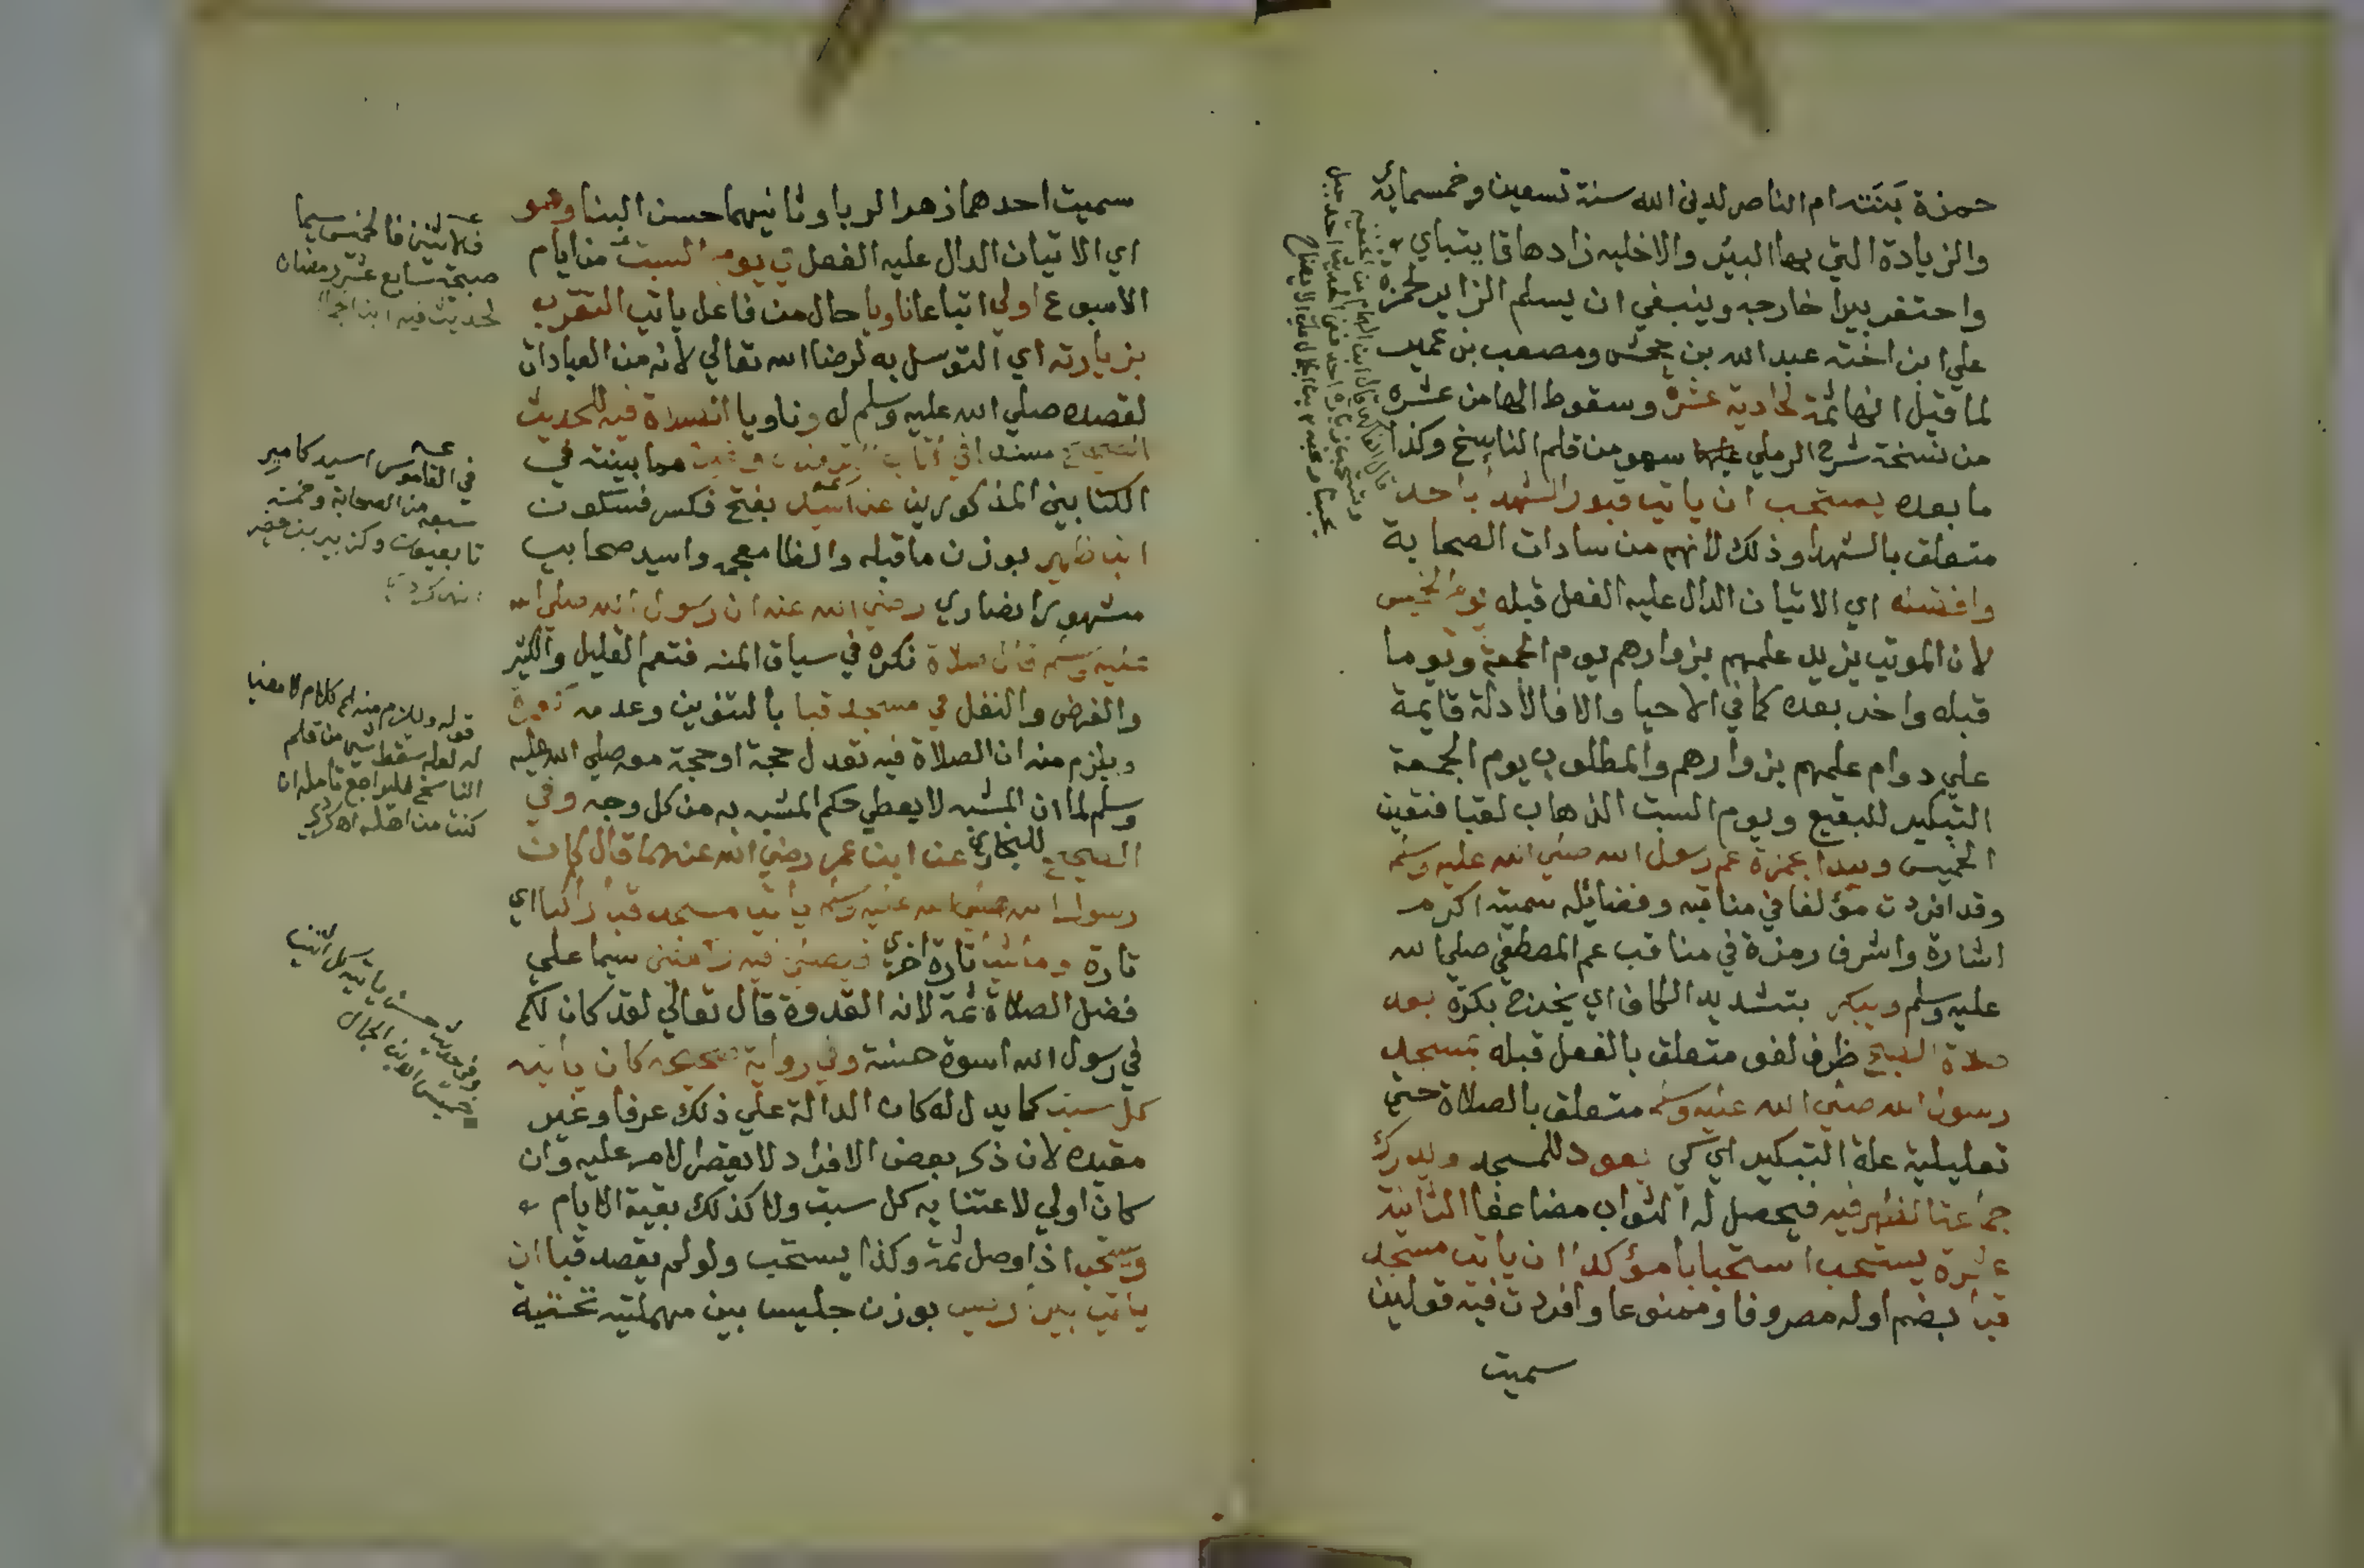 حمزة بَنَته ام الناصر لدين الله سنة تسعين وخمسماية
والزيادة التي بها البير والاخليه زادها قايتباي
واحتفر بيرا خارجه وينبغي ان يسلم الزاير لحمزة
علي ابن اخته عبد الله بن جحش ومصعب بن عمير
لما قيل انها ثمة الحادية عشرة وسقوط الهامن عشره
من نسخة شرح الرملي سهو من قلم الناسخ وكذا
ما بعده يستحب ان ياتي قبور الشهدا باحد
متعلق بالشهدا وذلك لانهم من سادات الصحابة
وافضله اي الاتيان الدال عليه الفعل قبله يوم الخميس
لان الموتي يزيد علمهم بزوارهم يوم الجمعة ويوما
قبله واخر بعده كما في الاحيا والا فالادلة قايمة
علي دوام علمهم بزوارهم والمطلوب يوم الجمعة
التبكير للبقيع ويوم السبت الذهاب لقبا فتعين
الخميس ويبدا بحمزة عم رسول الله صلي الله عليه وسلم
وقد افردت مؤلفا في مناقبه وفضائله سميته اكرم
اشارة واشرف رمزة في مناقب عم المصطفي صلي الله
عليه وسلم ويبكر بتشديد الكاف اي يخرج بكرة بعد
صلاة الصبح ظرف لغو متعلق بالفعل قبله بمسجد
رسول الله صلي الله عليه وسلم متعلق بالصلاة حتي
تعليلية علة التبكير اي كي يعود للمسجد ويدرك
جماعة الظهر فيه فيحصل له الثواب مضاعفا الثانية
عشرة يستحب استحبابا مؤكدا ان ياتي مسجد
قبا بضم اوله مصروفا وممنوعا وافردت فيه قولين
سميت
سميت احدهما زهر الربا وثانيهما حسن البنا وهو
اي الاتيان الدال عليه الفعل في يوم السبت من ايام
الاسبوع اولي اتباعا ناويا حال من فاعل ياتي التقرب
بزيارته اي التوسل به لرضا الله تعالي لانه من العبادات
لقصده صلي الله عليه وسلم له وناويا الصلاة فيه للحديث
الصحيح مسندا في كتاب الترمذي وغيره مما بينته في
الكتابين المذكورين عن اسيد بفتح فكسر فسكون
ابن ظهير بوزن ما قبله والظا معجمه واسيد صحابي
مشهور انصاري رضي الله عنه ان رسول الله صلي الله
عليه وسلم قال صلاة نكره في سياق المنه فتعم القليل والكثير
والفرض والنفل في مسجد قبا بالتنوين وعدمه كعمرة
ويلزم منه ان الصلاة فيه تعدل حجة او حجة معه صلي الله عليه
وسلم لما ان المشبه لا يعطي حكم المشبه به من كل وجه وفي
الصحيح للبخاري عن ابن عمر رضي الله عنهما قال كان
رسول الله صلي الله عليه وسلم ياتي مسجد قبا راكبا اي
تارة وماشيا تارة اخري فيصلي فيه ركعتين سيما علي
فضل الصلاة ثمة لانه القدوة قال تعالي لقد كان لكم
في رسول الله اسوة حسنة وفي رواية صحيحه كان ياتيه
كل سبت كما يدل له كان الدالة علي ذلك عرفا وغير
مقيده لان ذكر بعض الافراد لا يقصر الامر عليه وان
كان اولي لاعتنايه كل سبت ولا كذلك بقية الايام
ويستحب اذا وصل ثمة وكذا يستحب ولو لم يقصد قبا ان
ياتي بير اريس بوزن جليس بين مهملتيه تحتية
فالاثنين فالخميس سيما
صبحة سابع عشر رمضان
لحديث فيه
في القاموس اسيد كامير
سبعة من الصحابة وخمسة
تابعيون وكزبير بن حضير
قوله ويلزم منه الخ كلام لا معنيا
له لعله سقط شي من قلم
الناسخ فليراجع تامله ان
كنت من اهله اه كردي